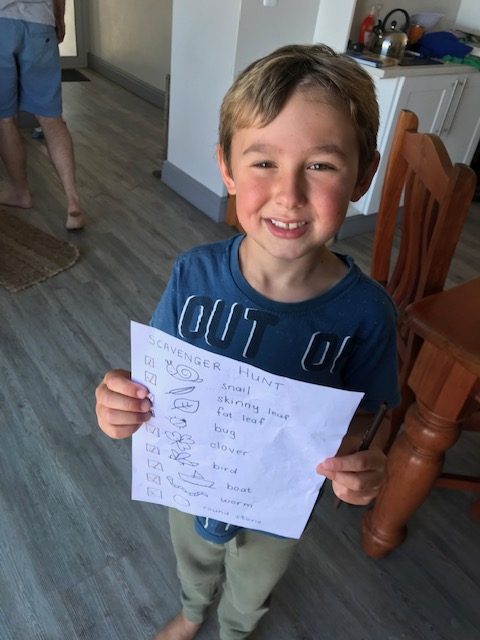 OUT
SCAVENGER HUNT
snail
skinny leaf
fat leaf
bug
clover
bird
boat
worm
round stone